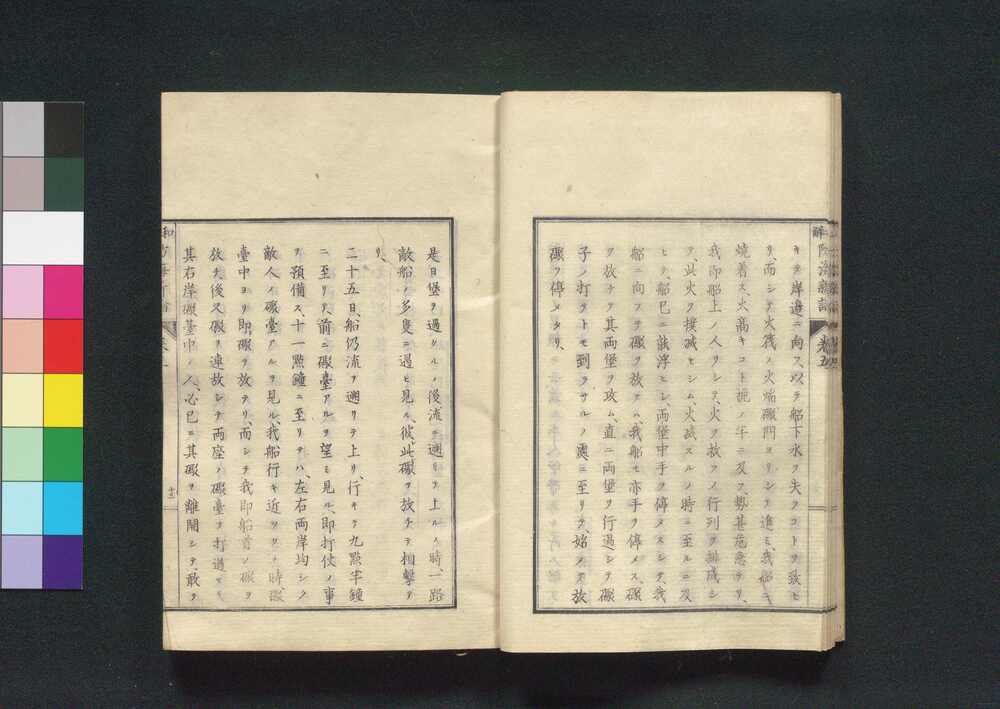 キテ岸邉ニ向フ、以テ船下水ヲ失フコトヲ致セ
リ、而シテ火筏ハ火焔礮門ヨリシテ進ミ、我船ニ
燒着ス、火高キコト桅ノ半ニ及フ、勢甚危急ナリ、
我即船上ノ人リシテ、火ヲ救フノ行列ヲ排成シ
テ、此火ヲ撲滅セシム、火滅スルノ時ニ至ルニ及
ヒテ、船已ニ浮ヒシ、両堡中手ヲ停メスシテ、我
船ニ向フテ礮ヲ放ス、我船モ亦手ヲ停メス、礮
ヲ放チテ其両堡ヲ攻ム、直ニ両堡ヲ行過シテ礮
子ノ打テトモ到ラサルノ處ニ至リテ、始メテ放
礮ヲ停メタリ、
是日堡ヲ過クルノ後流ヲ遡リテ上ルノ時、一路
敵船ノ多隻ニ過ヒ見ル、彼此礮ヲ放チテ相擊テ
リ、
二十五日、船仍流ヲ遡リテ上リ行キテ九點半鐘
ニ至リテ、前ニ礮臺アルヲ望ミ見ル、即打仗ノ事
ヲ預備ス、十一點鐘ニ至リテハ、左右両岸均シク
敵人ノ礮臺アルヲ見ル、我船行キ近ツクノ時礮
臺中ヨリ即礮ヲ放テリ、而シテ我即船首ノ礮ヲ
放チ、後又礮ヲ連放シテ両座ノ礮臺ヲ打過
其右岸礮臺中ノ人、必已ニ其礮ヲ離開シテ、敢テ
十二